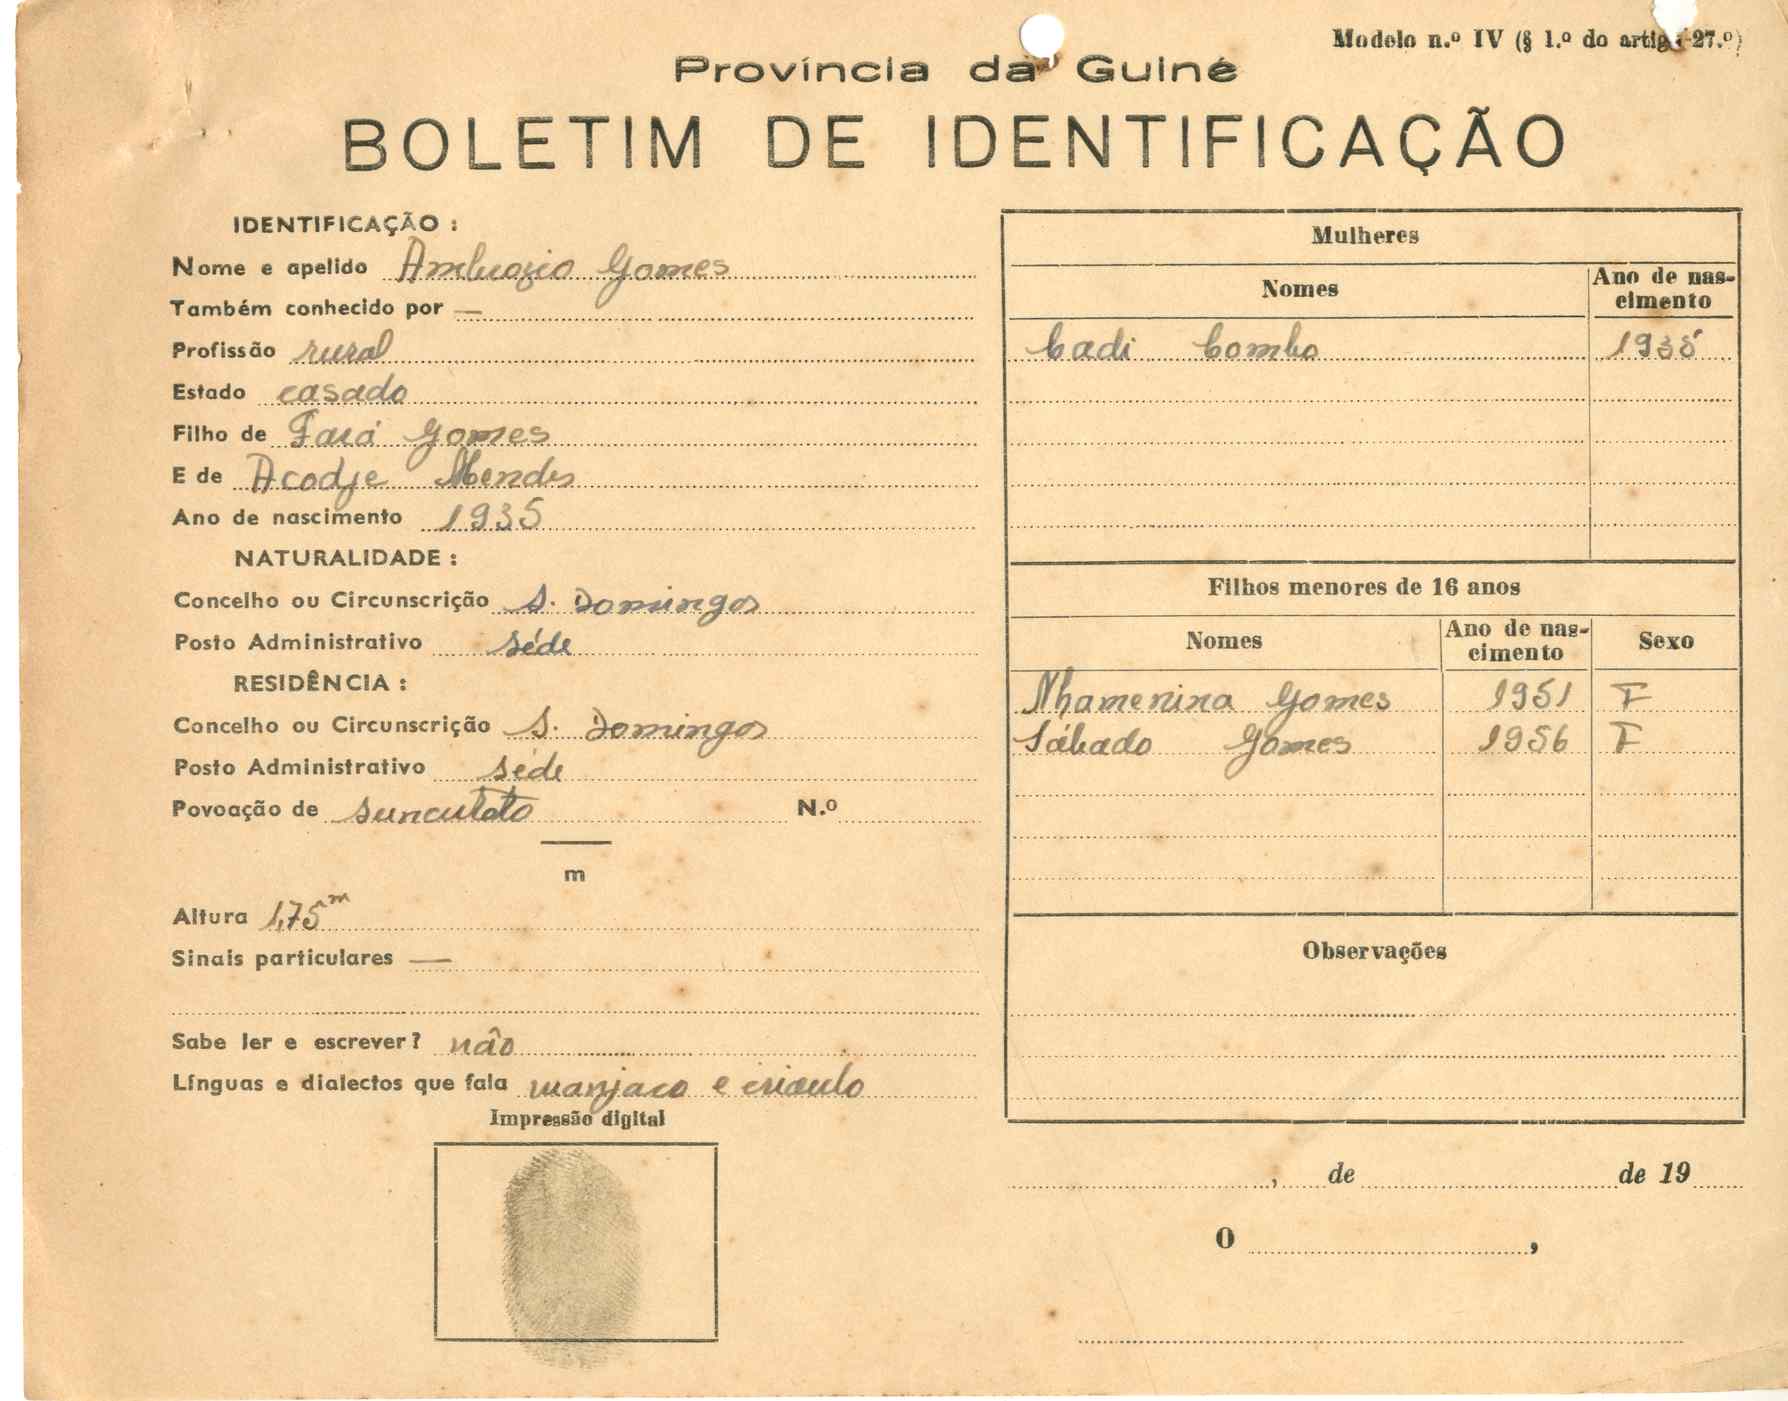 Modelo n.º IV (§ 1.º do artigo 27.º)
Província da Guiné
BOLETIM DE IDENTIFICAÇÃO
IDENTIFICAÇÃO :
Nome e apelido Ambrozio Gomes
Também conhecido por —
Profissão rural
Estado casado
Filho de Fará Gomes
E de Acodje Mendes
Ano de nascimento 1935
NATURALIDADE :
Concelho ou Circunscrição S. Domingos
Posto Administrativo séde
RESIDÊNCIA :
Concelho ou Circunscrição S. Domingos
Posto Administrativo séde
Povoação de suncutoto N.º
m
Altura 1,75 m
Sinais particulares —
Sabe ler e escrever? não
Línguas e dialectos que fala manjaco e crioulo
Impressão digital
Mulheres
Nomes Ano de nascimento
Cadi Combo 1935
Filhos menores de 16 anos
Nomes Ano de nascimento Sexo
Nhamenina Gomes 1951 F
Sábado Gomes 1956 F
Observações
, de de 19
O ,